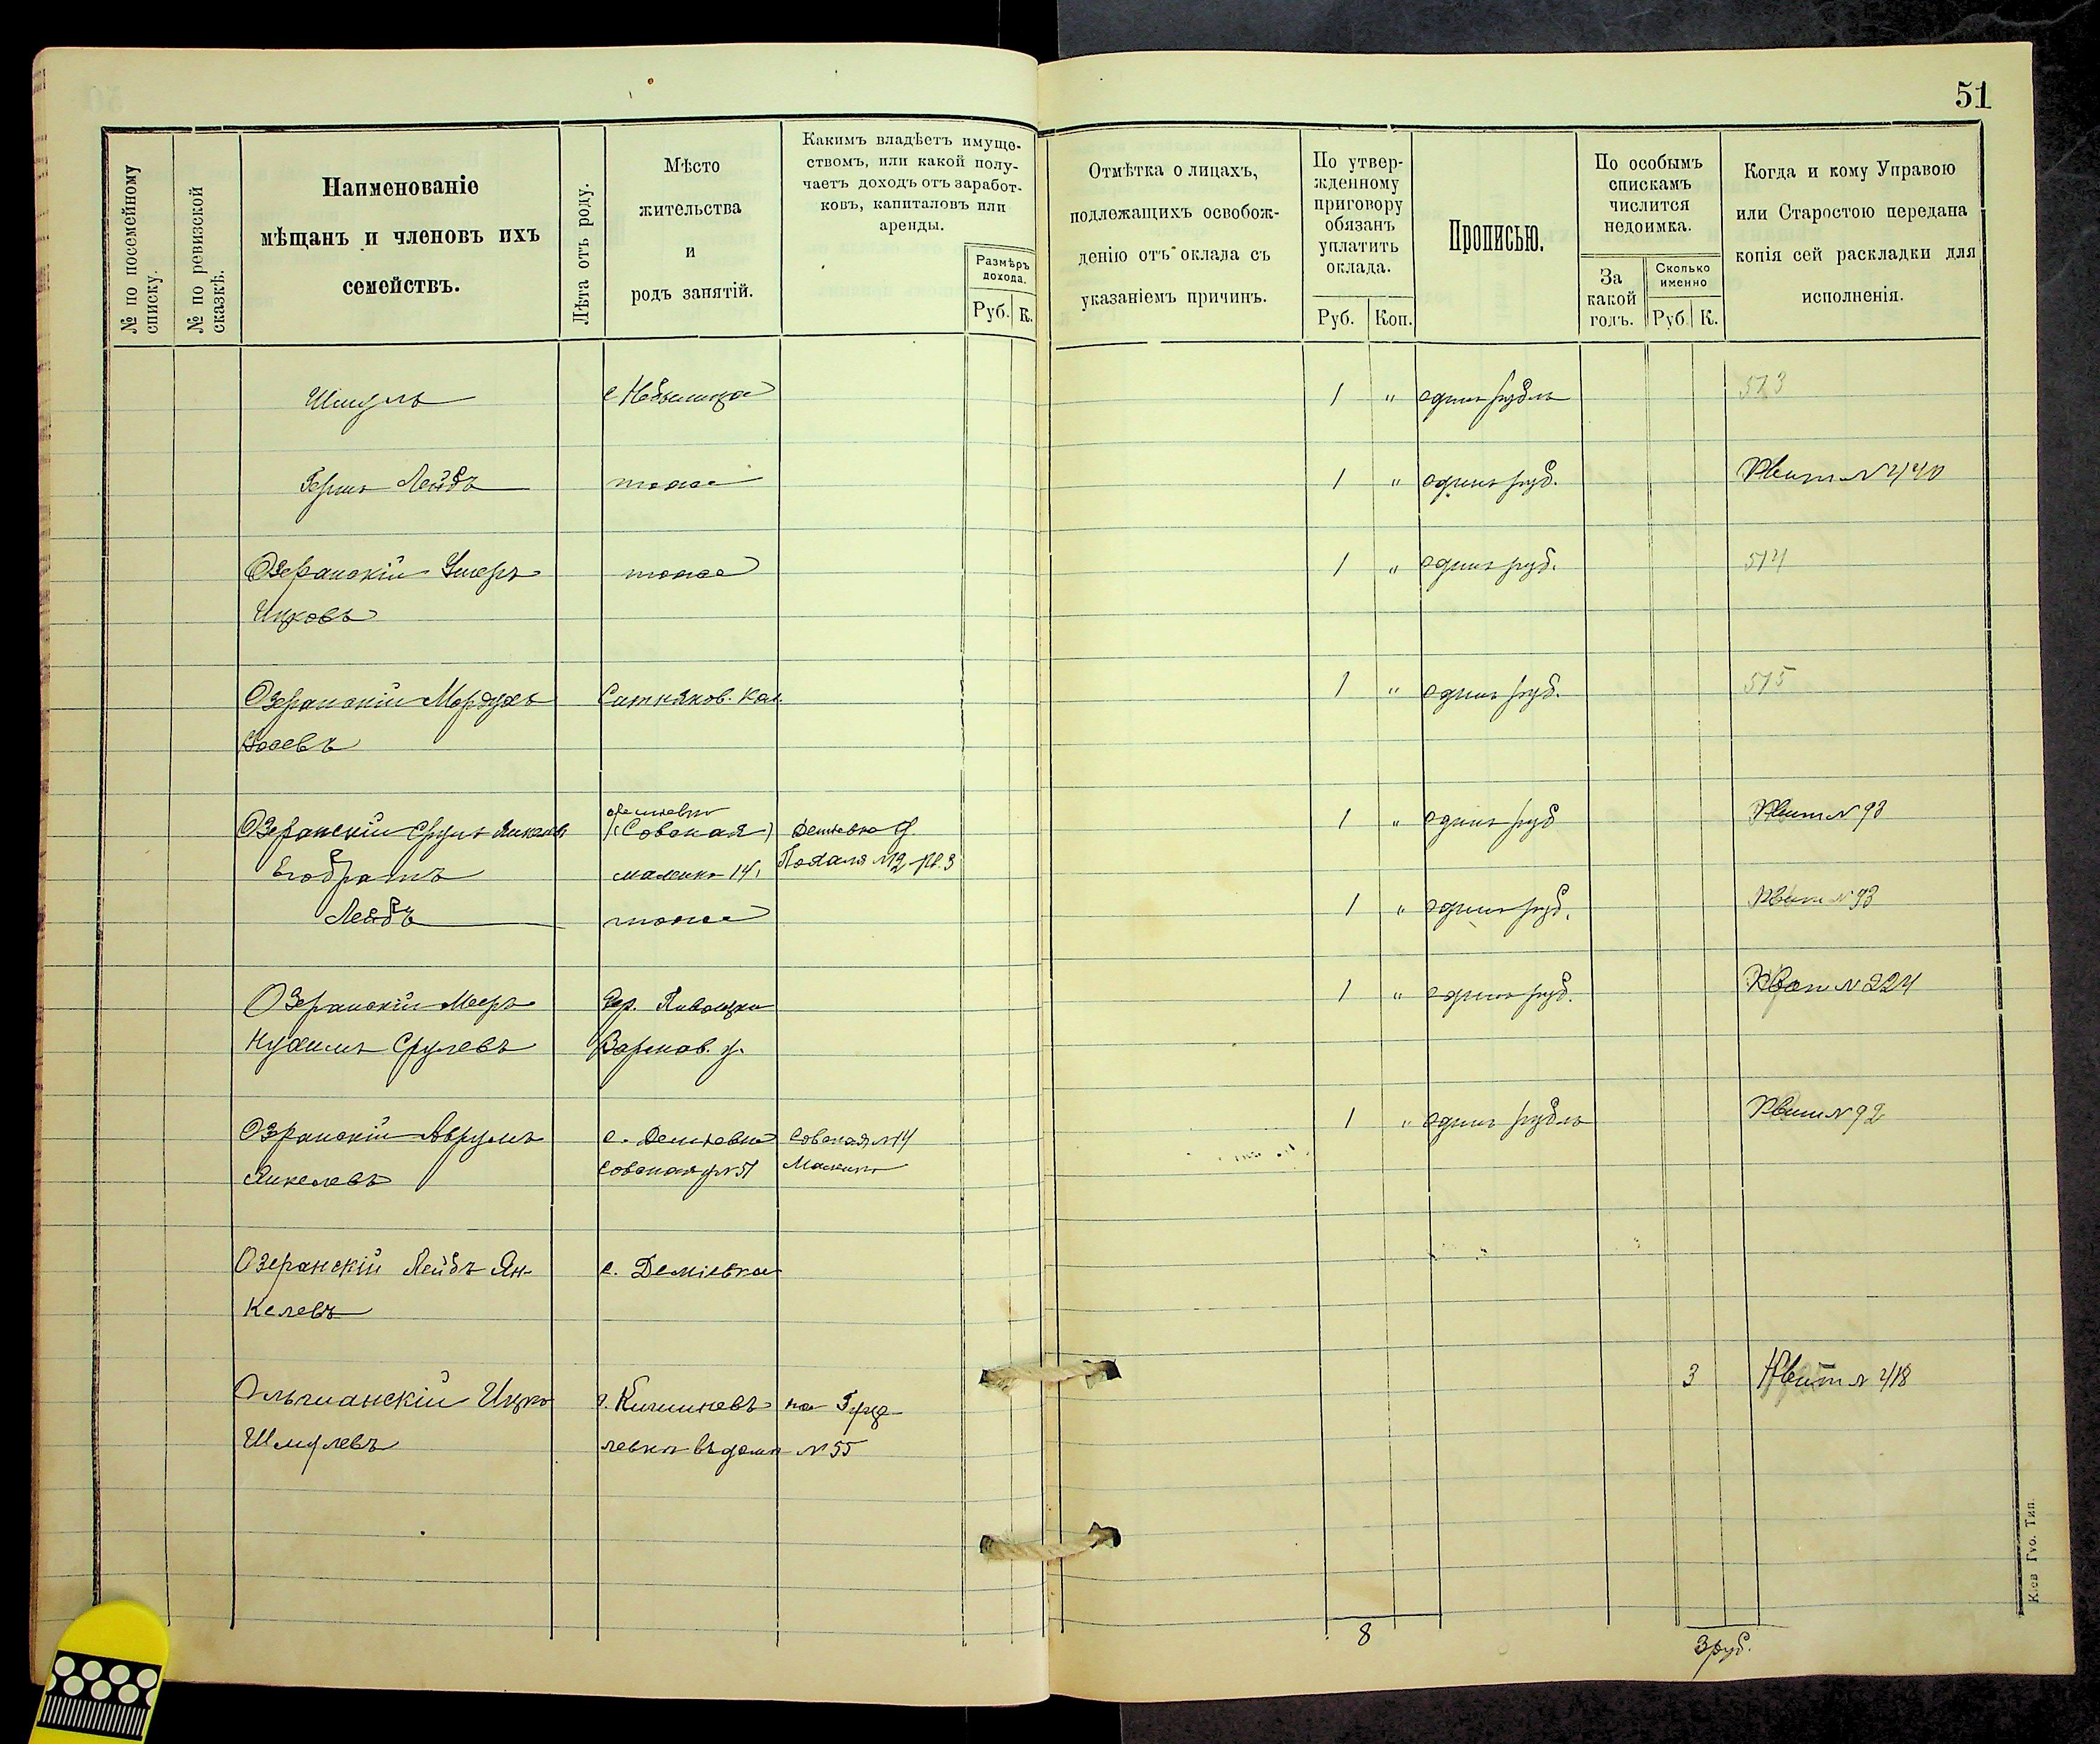 51
№ по посемейному списку.
№ по ревизской сказкѣ.
Наименованіе
мѣщанъ и членовъ ихъ
семействъ.
Лѣта отъ роду.
Мѣсто
жительства
и
родъ занятій.
Какимъ владѣетъ имуще-
ствомъ, или какой полу-
чаетъ доходъ отъ заработ-
ковъ, капиталовъ или
аренды.
Размѣръ
дохода.
Руб. К.
Отмѣтка о лицахъ,
подлежащихъ освобож-
денію отъ оклада съ
указаніемъ причинъ.
По утвер-
жденному
приговору
обязанъ
уплатить
оклада.
Руб. Коп.
Прописью.
По особымъ
спискамъ
числится
недоимка.
За
какой
годъ.
Сколько
именно
Руб. К.
Когда и кому Управою
или Старостою передана
копія сей раскладки для
исполненія.
Шмуль с Небылица 1 " одинъ рубль 513
Герш Лейбъ тоже 1 " одинъ руб. Квит № 440
Озеранскій Ушеръ тоже 1 " одинъ руб. 514
Ицковъ
Озеранскій Мордухъ Ситняков. Кол. 1 " одинъ руб. 515
Демievка
Озеранскій Сруль Янкелев (Совская) Демievка 1 " одинъ руб Квит № 93
Его братъ 14, №2 кв. 3
Лейбъ тоже 1 " одинъ руб. Квит № 93
Озеранскій Мееръ 1 " одинъ руб. Квит № 224
Нухимъ Срулевъ
Озранскій Аврумъ с. Демievка Совская № 14 1 " одинъ рубль Квит № 92
Янкелевъ Совская
Озеранскій Лейбъ Ян- с. Деміевка
келевъ
Ольшанскій Ицко г. Кишиневъ на 3 Квит № 418
Шмулевъ въ домѣ № 55
8 3 руб.
Кіев Губ. Тип.